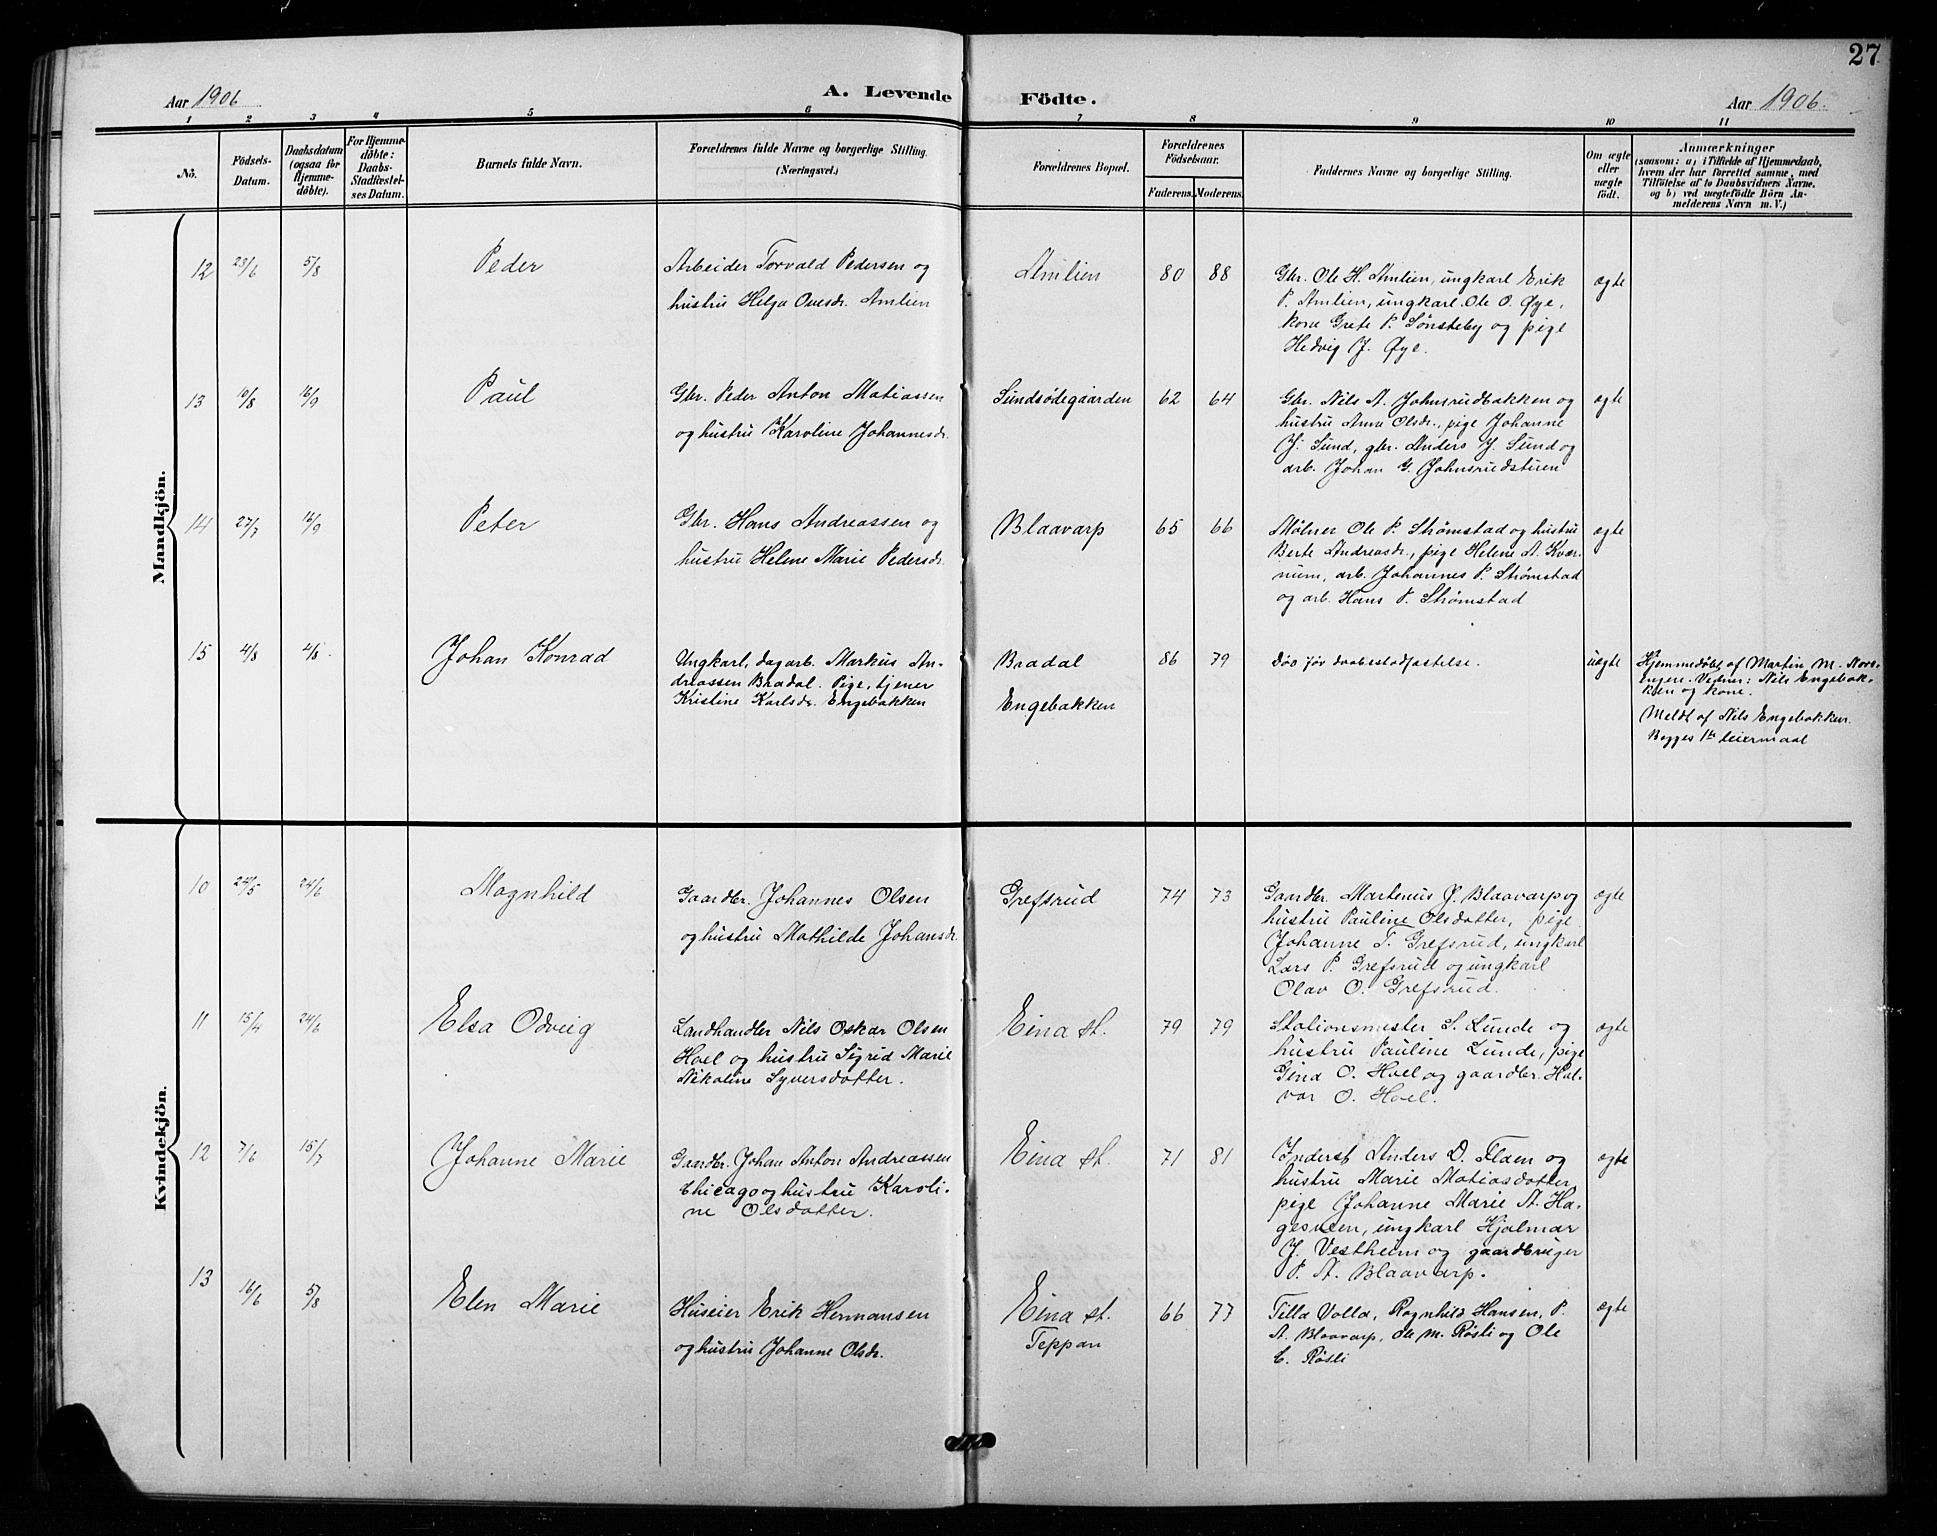 27
Aar 1906
A. Levende
Födte.
Aar 1906.
1 2 3 4 5 6 7 8 9 10 11
No.
Födsels-
Datum.
Daabsdatum
(ogsaa for
Hjemme-
döbte).
For Hjemme-
döbte:
Daabs-
Stadfæstel-
ses Datum.
Barnets fulde Navn.
Forældrenes fulde Navne og borgerlige Stilling.
(Næringsvei.)
Forældrenes Bopæl.
Forældrenes
Födselsaar.
Faderens. Moderens.
Faddernes Navne og borgerlige Stilling.
Om ægte
eller
uægte
födt.
Anmærkninger
(saasom: a) i Tilfælde af Hjemmedaab,
hvem der har forrettet samme, med
Tilföielse af to Daabsvidners Navne,
og b) ved uægtefödte Börn An-
melderens Navn m. V.)
Mandkjön.
12 23/6 5/8
Peder
Arbeider Torvald Pedersen og
hustru Helga Ovesdr. Amlien
Amlien
80 88
Gbr. Ole H. Amlien, ungkarl Erik
P. Amlien, ungkarl Ole O. Øye,
kone Grete P. Sønsteby og pige
Hedvig J. Øye.
ægte
13 10/8 16/9
Paul
Gbr. Peder Anton Matiassen
og hustru Karoline Johannesdr.
Sundsødegaarden
62 64
Gbr. Nils A. Johnsrudbakken og
hustru Anne Olsdr., pige Johanne
J. Sund, gbr. Anders J. Sund og
arb. Johan G. Johnsrudstuen
ægte
14 27/7 16/9
Peter
Gbr. Hans Andreassen og
hustru Helene Marie Pedersdr.
Blaavarp
65 66
Mølner Ole P. Strømstad og hustru
Berte Andreasdr., pige Helene A. Kvær-
num, arb. Johannes P. Strømstad
og arb. Hans P. Strømstad
ægte
15 4/8 4/8.
Johan Konrad
Ungkarl, dagarb. Markus An-
dreassen Bradal. Pige, tjener
Kristine Karlsdr. Engebakken
Bradal
Engebakken
86 79
Død før daabsstadfæstelse.
uægte
Hjemmedøbt af Martin M. Nord-
engen. Vidner: Nils Engebak-
ken og kone.
Meldt af Nils Engebakken.
Begges 1ste leiermaal
Kvindekjön.
10 24/5 24/6
Magnhild
Gaardbr. Johannes Olsen
og hustru Mathilde Johansdr.
Grefsrud
74 73
Gaardbr. Martenius J. Blaavarp og
hustru Pauline Olsdatter, pige
Johanne T. Grefsrud, ungkarl
Lars P. Grefsrud og ungkarl
Olav O. Grefsrud.
ægte
11 15/4 24/6
Elsa Odveig
Landhandler Nils Oskar Olsen
Hoel og hustru Sigrid Marie
Nikoline Syversdatter.
Eina st.
79 79
Stationsmester S. Lunde og
hustru Pauline Lunde, pige
Gina O. Hoel og gaardbr. Hal-
var O. Hoel.
ægte
12 7/6 15/7
Johanne Marie
Gaardbr. Johan Anton Andreassen
Chicago og hustru Karoli-
ne Olsdatter.
Eina st.
71 81
Inderst Anders D. Flaen og
hustru Marie Matiasdatter,
pige Johanne Marie A. Ha-
gesveen, ungkarl Hjalmar
J. Vestheim og gaardbruger
P. A. Blaavarp.
ægte
13 16/6 5/8
Elen Marie
Huseier Erik Hermansen
og hustru Johanne Olsdr.
Eina st.
Teppan
66 77
Tilla Volla, Ragnhild Hansen, P.
A. Blaavarp, Ole M. Røsli og Ole
C. Røsli
ægte